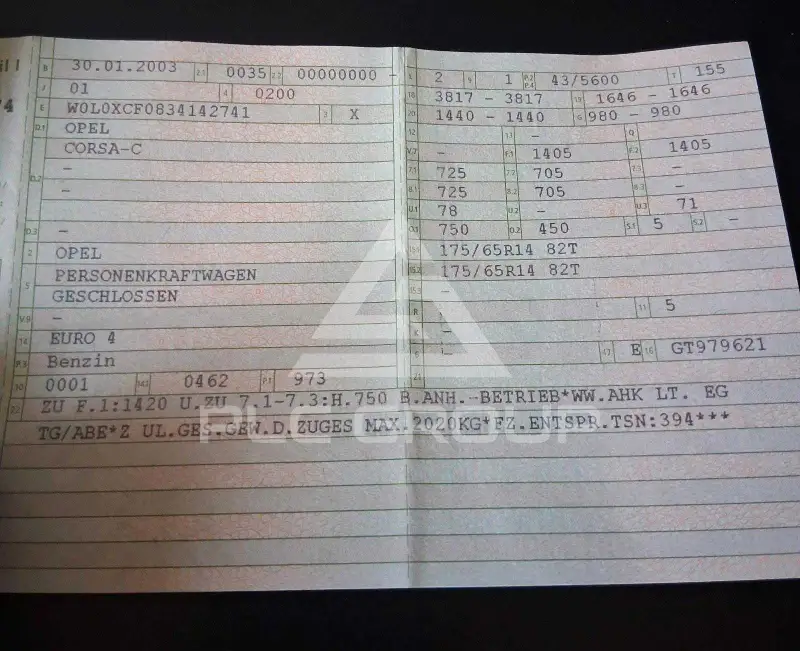 B 30.01.2003 2.1 0035 2.2 00000000 - L 2 9 1 P.2 P.4 43/5600 T 155
J 01 4 0200 18 3817 - 3817 19 1646 - 1646
E W0L0XCF0834142741 3 X 20 1440 - 1440 G 980 - 980
D.1 OPEL 12 - 13 - Q
CORSA-C V.7 - F.1 1405 F.2 1405
D.2 - 7.1 725 7.2 705 7.3 -
- 8.1 725 8.2 705 8.3 -
U.1 78 U.2 - U.3 71
D.3 - O.1 750 O.2 450 S.1 5 S.2 -
2 OPEL 15.1 175/65R14 82T
5 PERSONENKRAFTWAGEN 15.2 175/65R14 82T
GESCHLOSSEN 15.3 -
V.9 - R 11 5
14 EURO 4 K -
P.3 Benzin 6 - 17 E 16 GT979621
10 0001 14.1 0462 P.1 973 21
22 ZU F.1:1420 U.ZU 7.1-7.3:H.750 B.ANH.-BETRIEB*WW.AHK LT. EG
TG/ABE*Z UL.GES.GEW.D.ZUGES MAX.2020KG*FZ.ENTSPR.TSN:394***
PLC GROUP